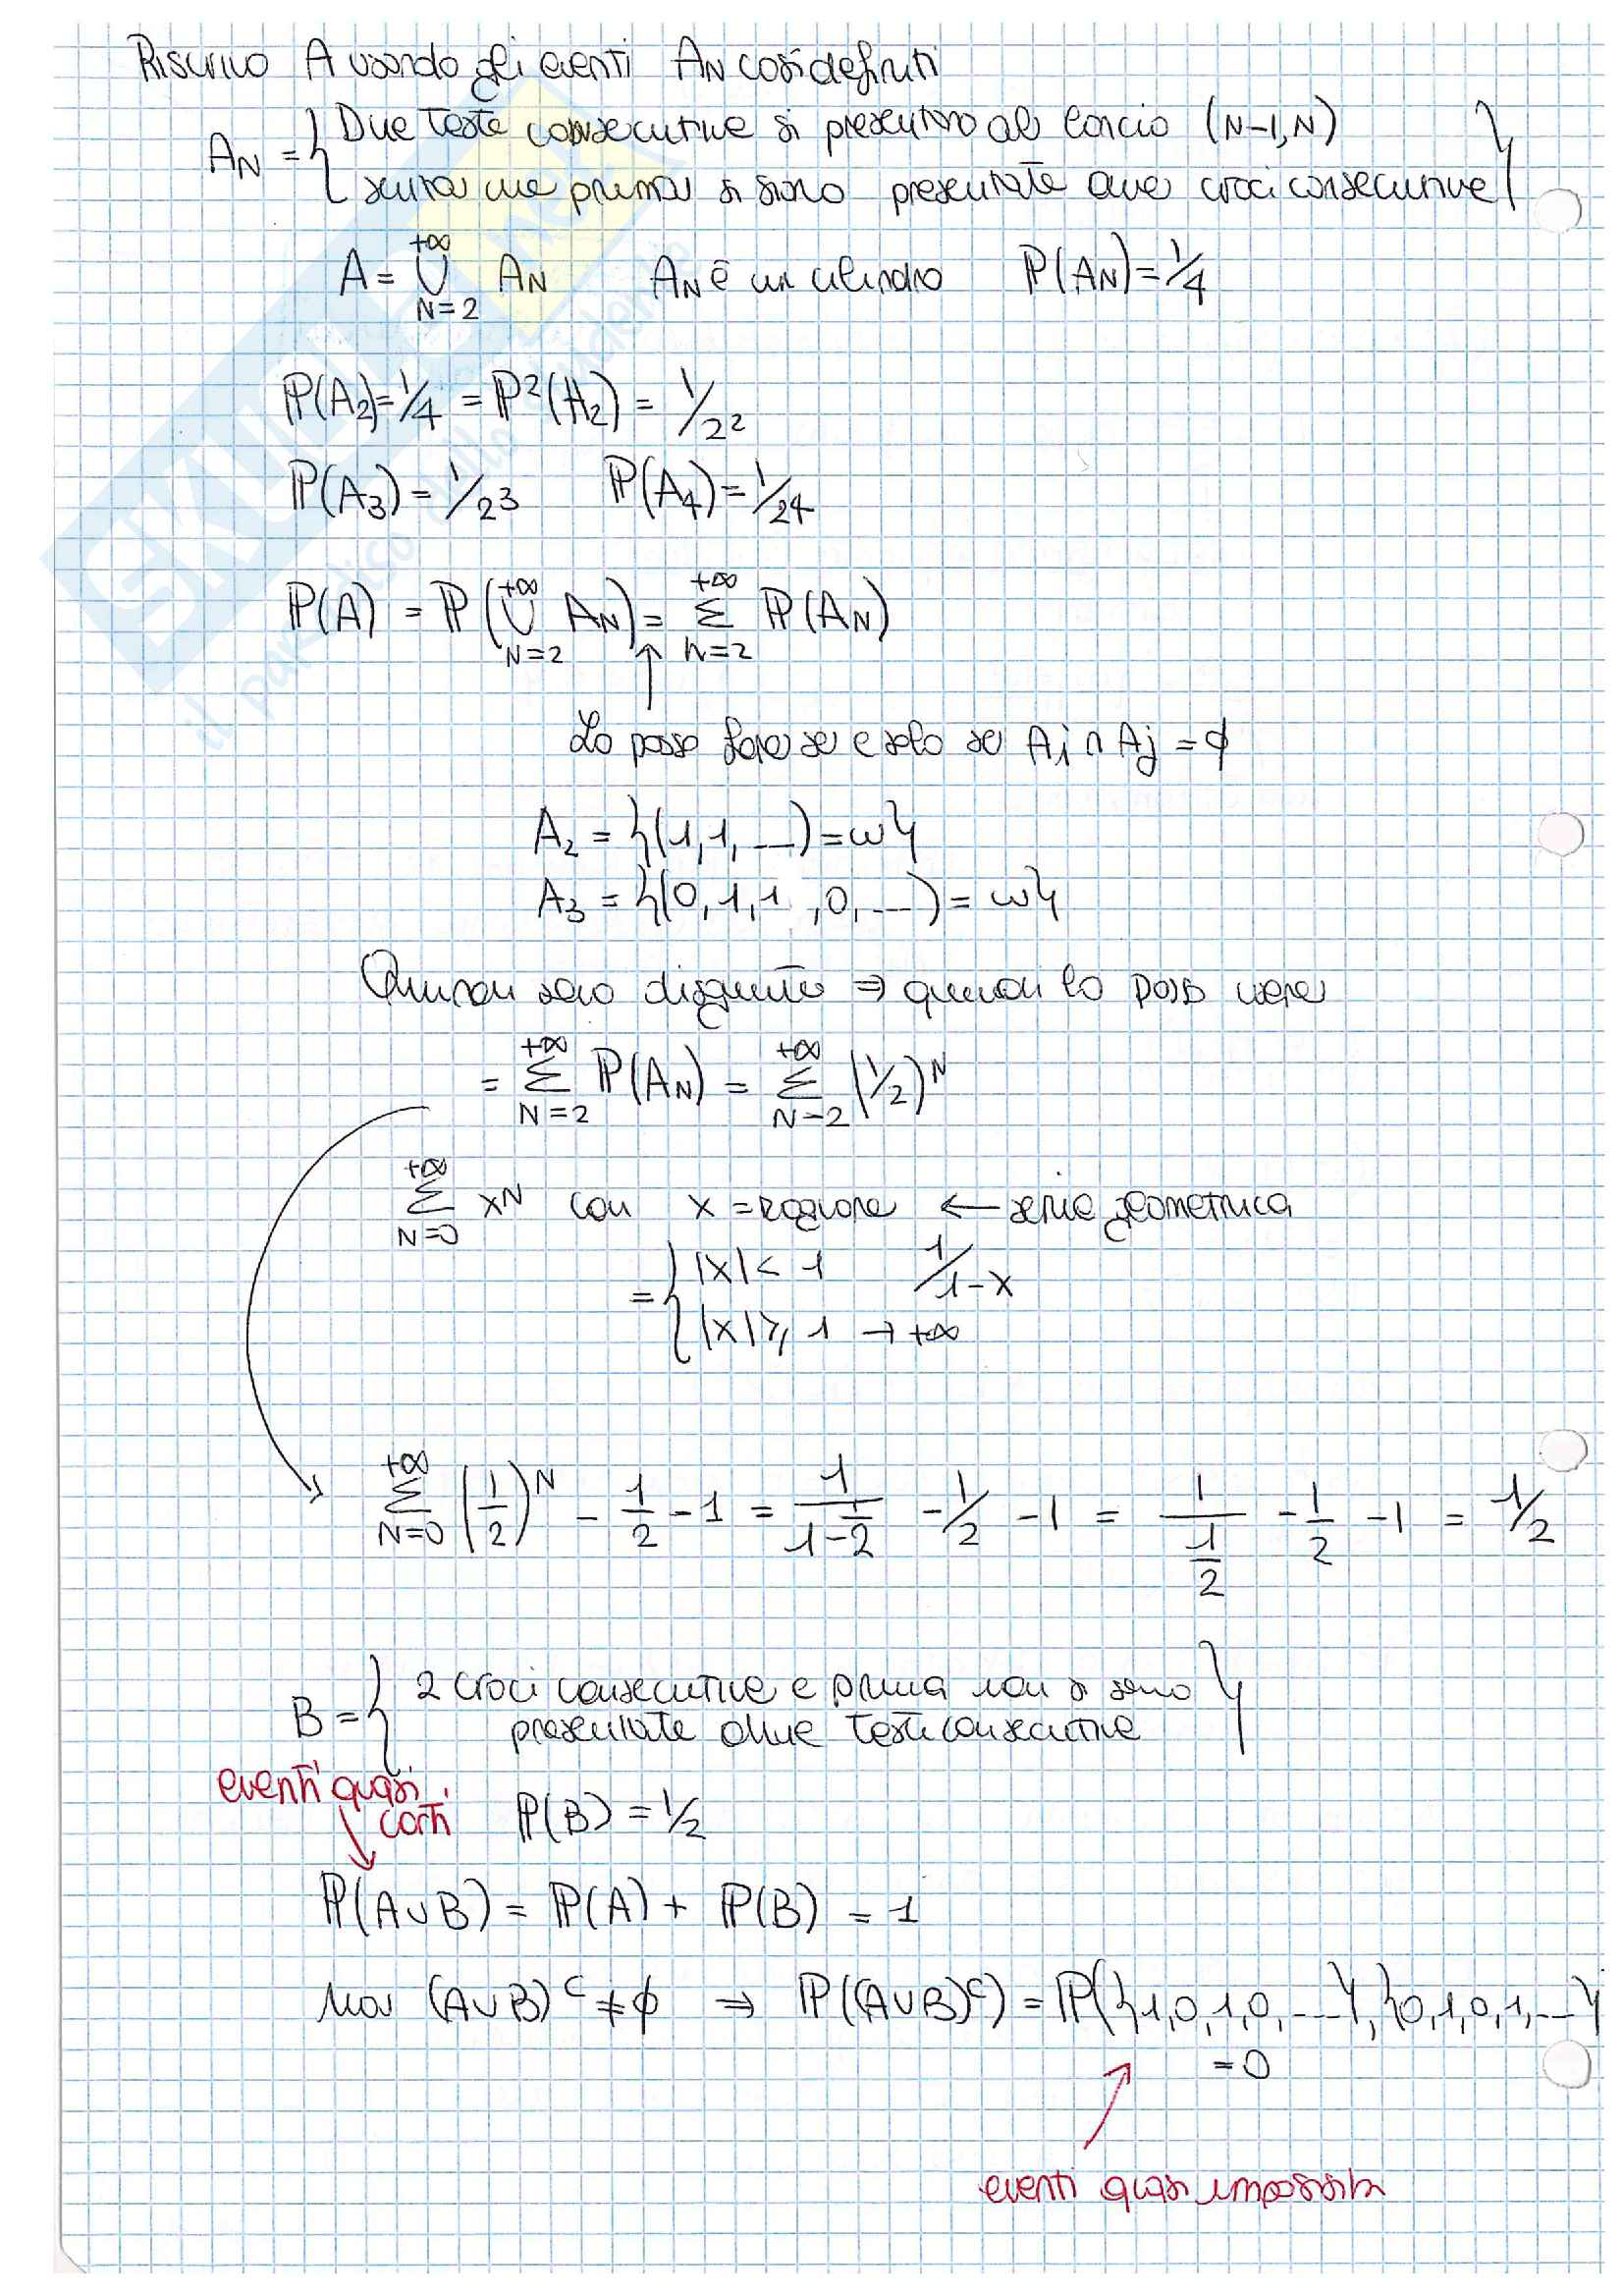 Riscrivo A usando gli eventi AN così definiti
AN = { Due teste consecutive si presentano al lancio (N-1, N)
senza che prima si siano presentate due croci consecutive }
A = ∪_{N=2}^{+∞} AN   AN è un cilindro   ℙ(AN) = 1/4
ℙ(A2) = 1/4 = ℙ²(A2) = 1/2²
ℙ(A3) = 1/2³   ℙ(A4) = 1/2⁴
ℙ(A) = ℙ(∪_{N=2}^{+∞} AN) = Σ_{n=2}^{+∞} ℙ(AN)
Lo posso fare se e solo se Ai ∩ Aj = ∅
A2 = {(1, 1, ...) = ω}
A3 = {(0, 1, 1, 0, ...) = ω}
Quindi sono disgiunti ⇒ quindi lo posso
= Σ_{N=2}^{+∞} ℙ(AN) = Σ_{N=2}^{+∞} (1/2)^N
Σ_{N=0}^{+∞} x^N con x = ragione ← serie geometrica
= { |x| < 1   1/1-x
|x| ≥ 1 → +∞
Σ_{N=0}^{+∞} (1/2)^N - 1/2 - 1 = 1/(1-1/2) - 1/2 - 1 = 1/(1/2) - 1/2 - 1 = 1/2
B = { 2 croci consecutive e prima non si sono
presentate due teste consecutive }
eventi quasi
certi   ℙ(B) = 1/2
ℙ(A∪B) = ℙ(A) + ℙ(B) = 1
Ma (A∪B)^c ≠ ∅ ⇒ ℙ((A∪B)^c) = ℙ({1,0,1,0,...}, {0,1,0,1,...}
= 0
eventi quasi impossibili